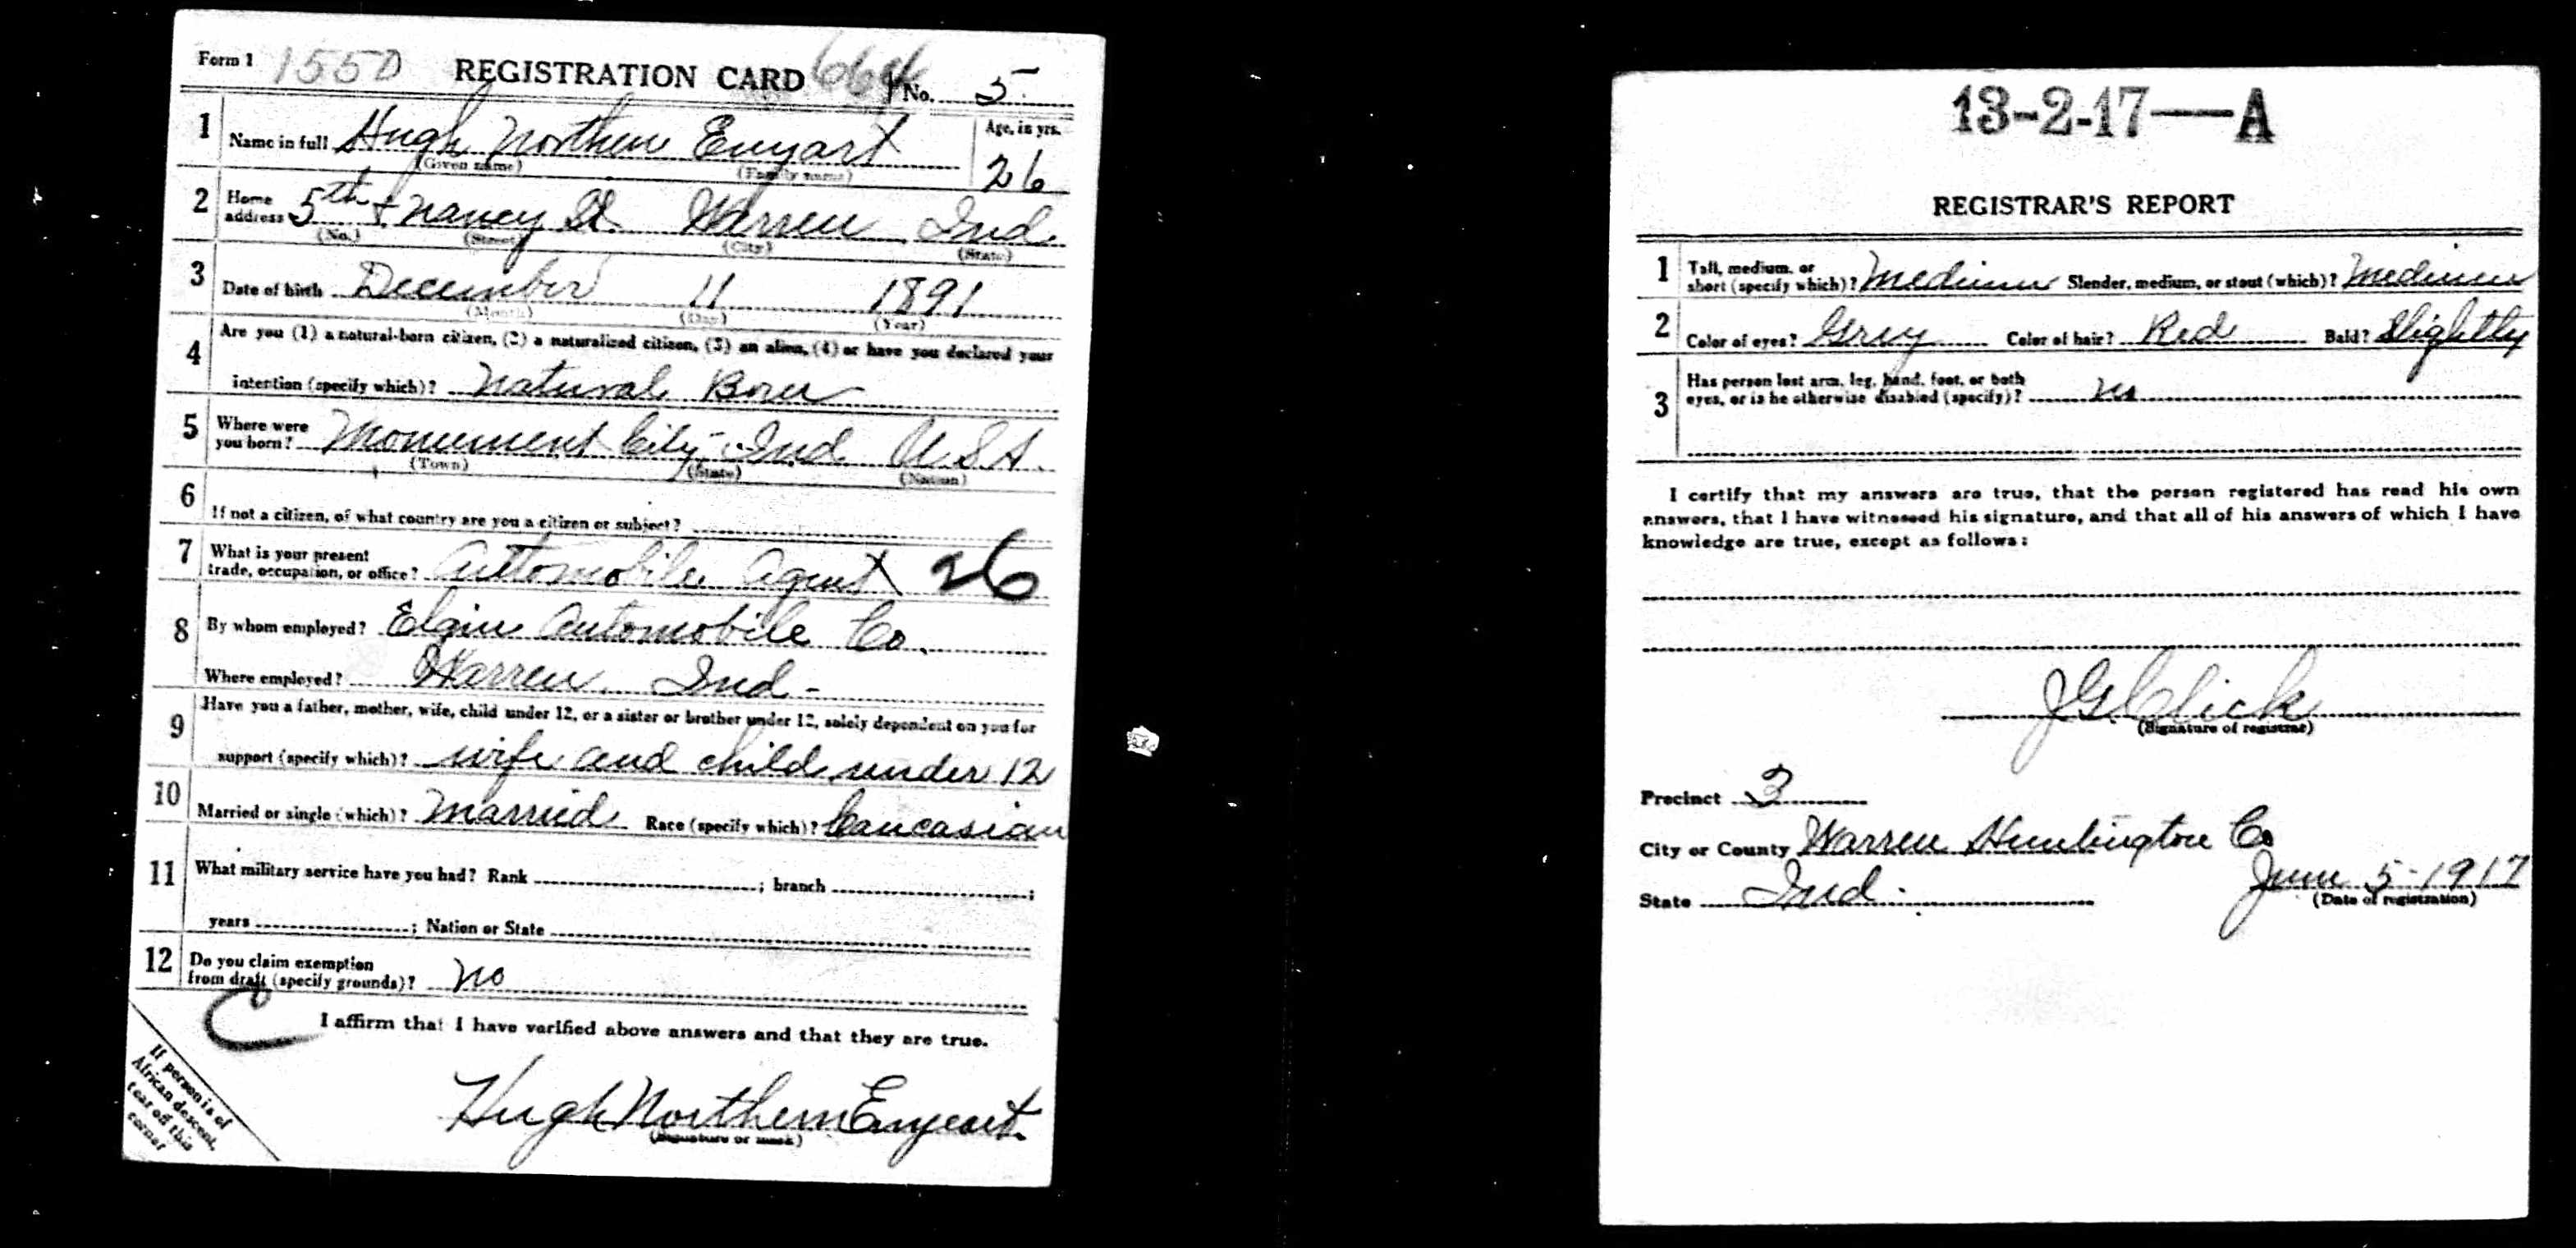 Form 1 1550 REGISTRATION CARD No. 5
1 Name in full Hugh Northern Enyart Age, in yrs.
(Given name) (Family name) 26
2 Home address 5th + Nancy St. Warren Ind
(No.) (Street) (City) (State)
3 Date of birth December 11 1891
(Month) (Day) (Year)
4 Are you (1) a natural-born citizen, (2) a naturalized citizen, (3) an alien, (4) or have you declared your
intention (specify which)? Natural Born
5 Where were you born? Monument City - Ind USA.
(Town) (State) (Nation)
6 If not a citizen, of what country are you a citizen or subject?
7 What is your present
trade, occupation, or office? Automobile Agent 26
8 By whom employed? Elgin Automobile Co.
Where employed? Warren Ind -
9 Have you a father, mother, wife, child under 12, or a sister or brother under 12, solely dependent on you for
support (specify which)? wife and child under 12
10 Married or single (which)? Married Race (specify which)? Caucasian
11 What military service have you had? Rank ; branch ;
years ; Nation or State
12 Do you claim exemption
from draft (specify grounds)? No
C I affirm that I have verified above answers and that they are true.
Hugh Northern Enyeart.
(Signature or mark)
If person is of
African descent,
tear off this
corner
13-2-17—A
REGISTRAR'S REPORT
1 Tall, medium, or
short (specify which)? Medium Slender, medium, or stout (which)? Medium
2 Color of eyes? Grey Color of hair? Red Bald? Slightly
3 Has person lost arm, leg, hand, foot, or both
eyes, or is he otherwise disabled (specify)? no
I certify that my answers are true, that the person registered has read his own
answers, that I have witnessed his signature, and that all of his answers of which I have
knowledge are true, except as follows:
J G Click
(Signature of registrar)
Precinct 3
City or County Warren Huntington Co
State Ind. June 5-1917
(Date of registration)